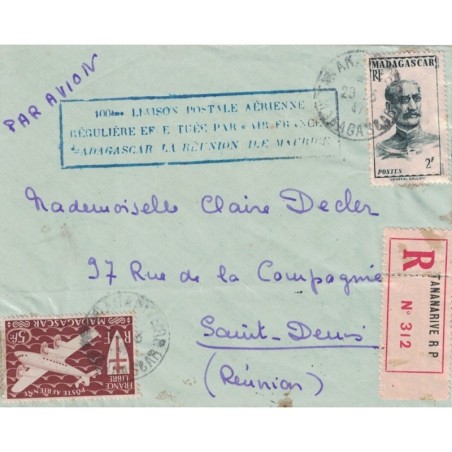 PAR AVION
100ème LIAISON POSTALE AÉRIENNE
RÉGULIÈRE EFFECTUÉE PAR « AIR-FRANCE »
MADAGASCAR LA RÉUNION ILE MAURICE
MADAGASCAR
RF
POSTES
2F
Mademoiselle Claire Decler
97 Rue de la Compagnie
Saint-Denis
(Réunion)
R
TANANARIVE R P
N° 312
MADAGASCAR
RF
5F
POSTE AÉRIENNE
FRANCE
LIBRE